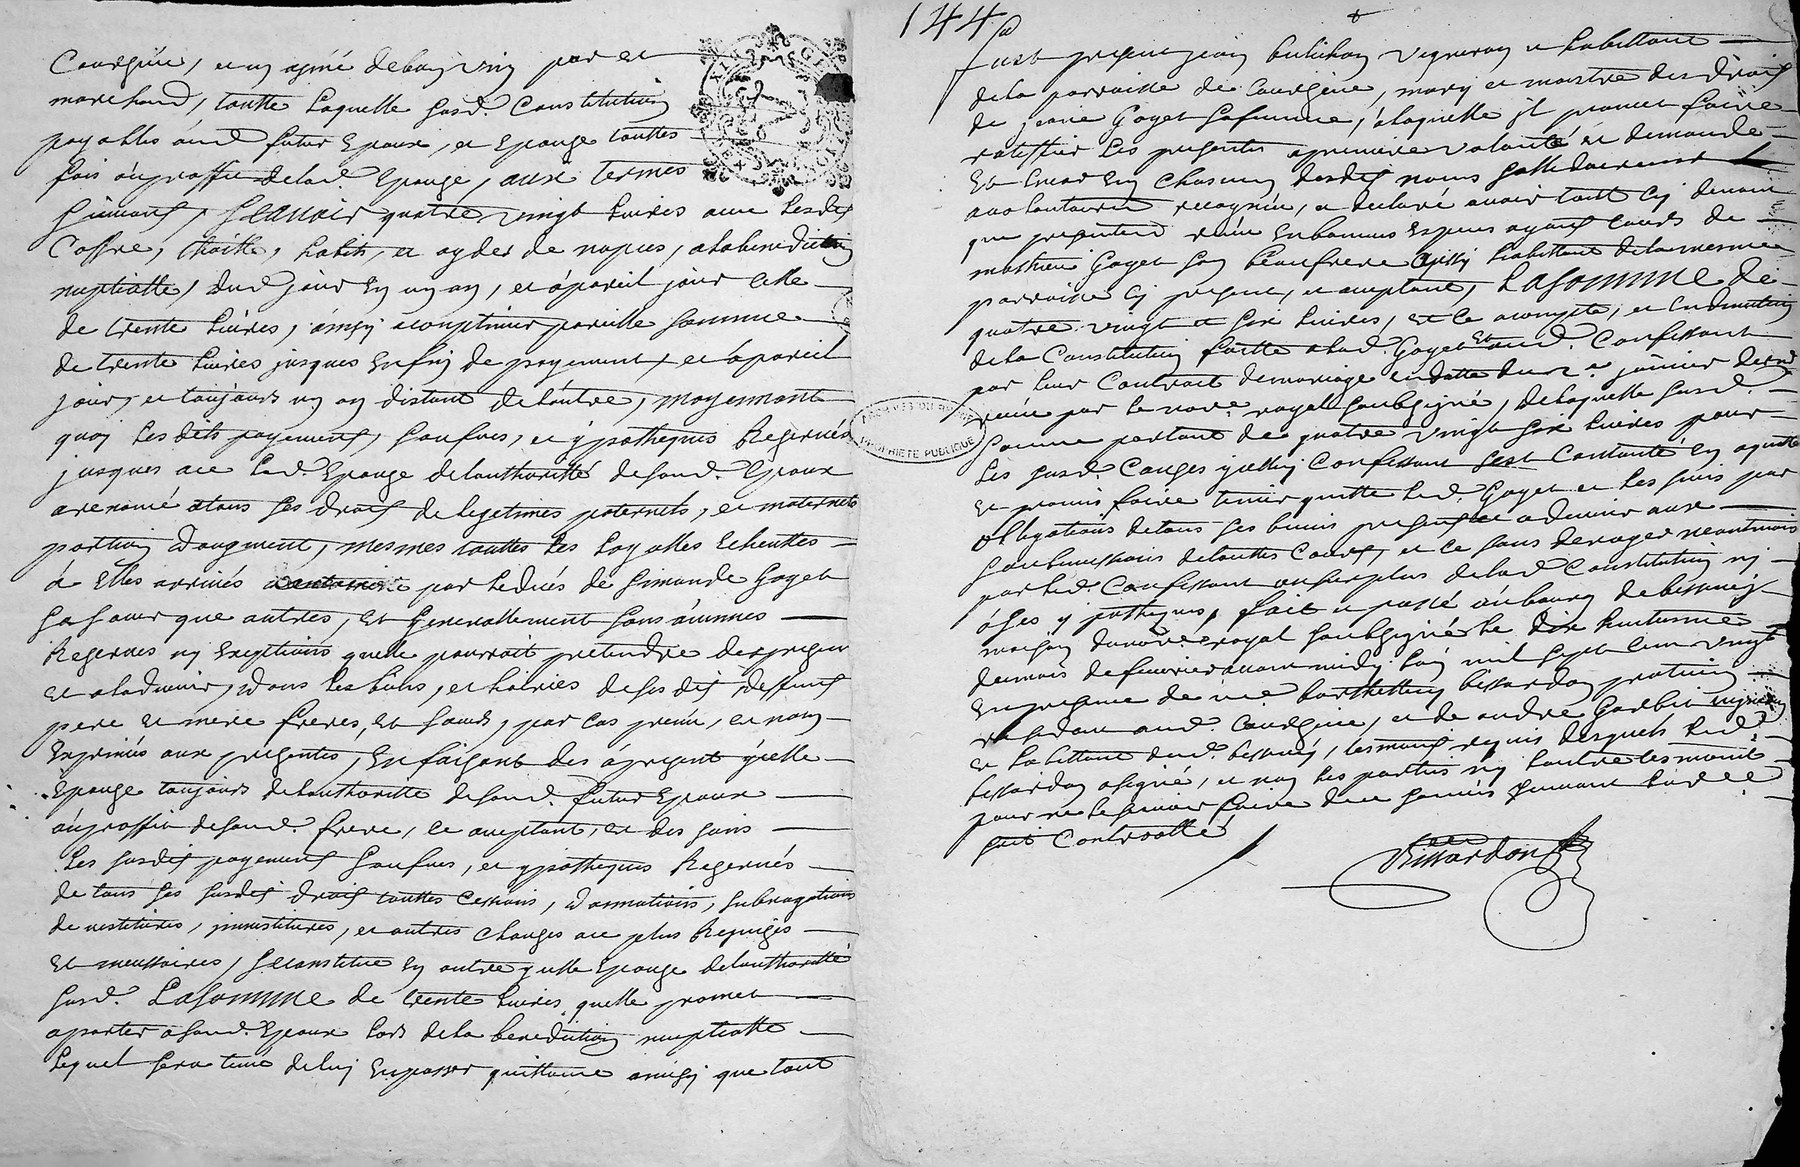 Courgenie, et un asnée debon vin pur et
marchand, toutte laquelle susd. Constitution
payables aud futur Epoux, et Epouze touttes
fois au proffit delad. Epouze, aux termes
suivants, scavoir quatre vingt livres avec lesdits
Coffre, habits, et de nopces, ala benediction
nuptialle, dud jour en un an, et a pareil jour celle
de trente livres, ainsy acontinuer pareille somme
de trente livres jusques enfin de payement, et a pareil
jour, et toujours un an distant de lautre, moyennant
quoy lesdits payements saufves, et ypotheques Reservés
jusques ace lad. Epouze delauthoritté desond. Epoux
arenoncé atous ses droits de legitimes paternels, et maternels
portion daugment, mesmes touttes les loyalles echeuttes
a elles arrivés par ledeces de simonde Goyet
sa soeur que autres, et generallement sans aucunes
Reserves ny exceptions quelle pourroit pretendre desprezent
et aladvenir, dans les biens, et hoiries de ses dits deffunts
pere et mere freres, et soeurs, par cas preveu, et non
Exprimés aux presentes, En faisant des apresent ycelle
Epouze toujours delauthoritté desond. futur Epoux
auproffit desond. frere, ce aceptant, et des siens
les susdits payements saufves, et ypotheques Reservés
de tous ses susdits droits touttes Cessions, donnations, subrogations
de vestitures, investitures, et autres choses ace plus Requises
et necessaires, se constitue en outre ycelle Epouze delauthoritté
susd. Lasomme de trente livres, quelle promet
aporter asond. Epoux lors dela benediction nuptialle
lequel sera tenu deluy en passer quittance ainsy que tout
144
fust present jean vigneron et habittant
dela parroisse de Courgenie, mary et maistre des droits
de jeane Goyet safemme, alaquelle il promet faire
ratiffier les presentes apremiere volonté et demande
Et lequel en chacun desdits noms
avolontairement recognu, et declaré avoir tout cy devant
que presentement receu enbonnes Especes ayant cours de
mathieu Goyet son beaufrere aussy habittant dela mesme
parroisse cy present, et aceptant, Lasomme de
quatre vingt et six livres, et ce acompte, et endiminution
dela Constitution faitte alad. Goyet et aud. Confessant
par leur Contract demariage endatte du janvier dernier
receu par le no.re royal soubsigné, delaquelle susd.
somme portant de quatre vingt six livres pour
les susd. Causes ycelluy Confessant sest Contenté en aquitte
et promis faire tenir quitte led. Goyet et les siens par
obligations detous ses biens presents et advenir aux
soubmissions detouttes Cours, et ce sans deroger neantmoins
par led. Confessant au surplus delad Constitution ny
ases ypotheques, fait et passé aubourg debessenay
maison dunotre royal soubsigné le dix huitieme
dumois defevrier avant midy lan mil sept cent vingt
En presence de me barthellemy bissardon praticien
residant aud. Courgenie, et de andre vigneron
et habittant dud. bessenay, tesmoins requis desquels led.
bissardon asigné, et non les parties ny lautre tesmoint
pour ne lescavoir faire dece sommés suivant lordce
sera Controollé
Bissardon
ARCHIVES DU RHONE
PROPRIETE PUBLIQUE